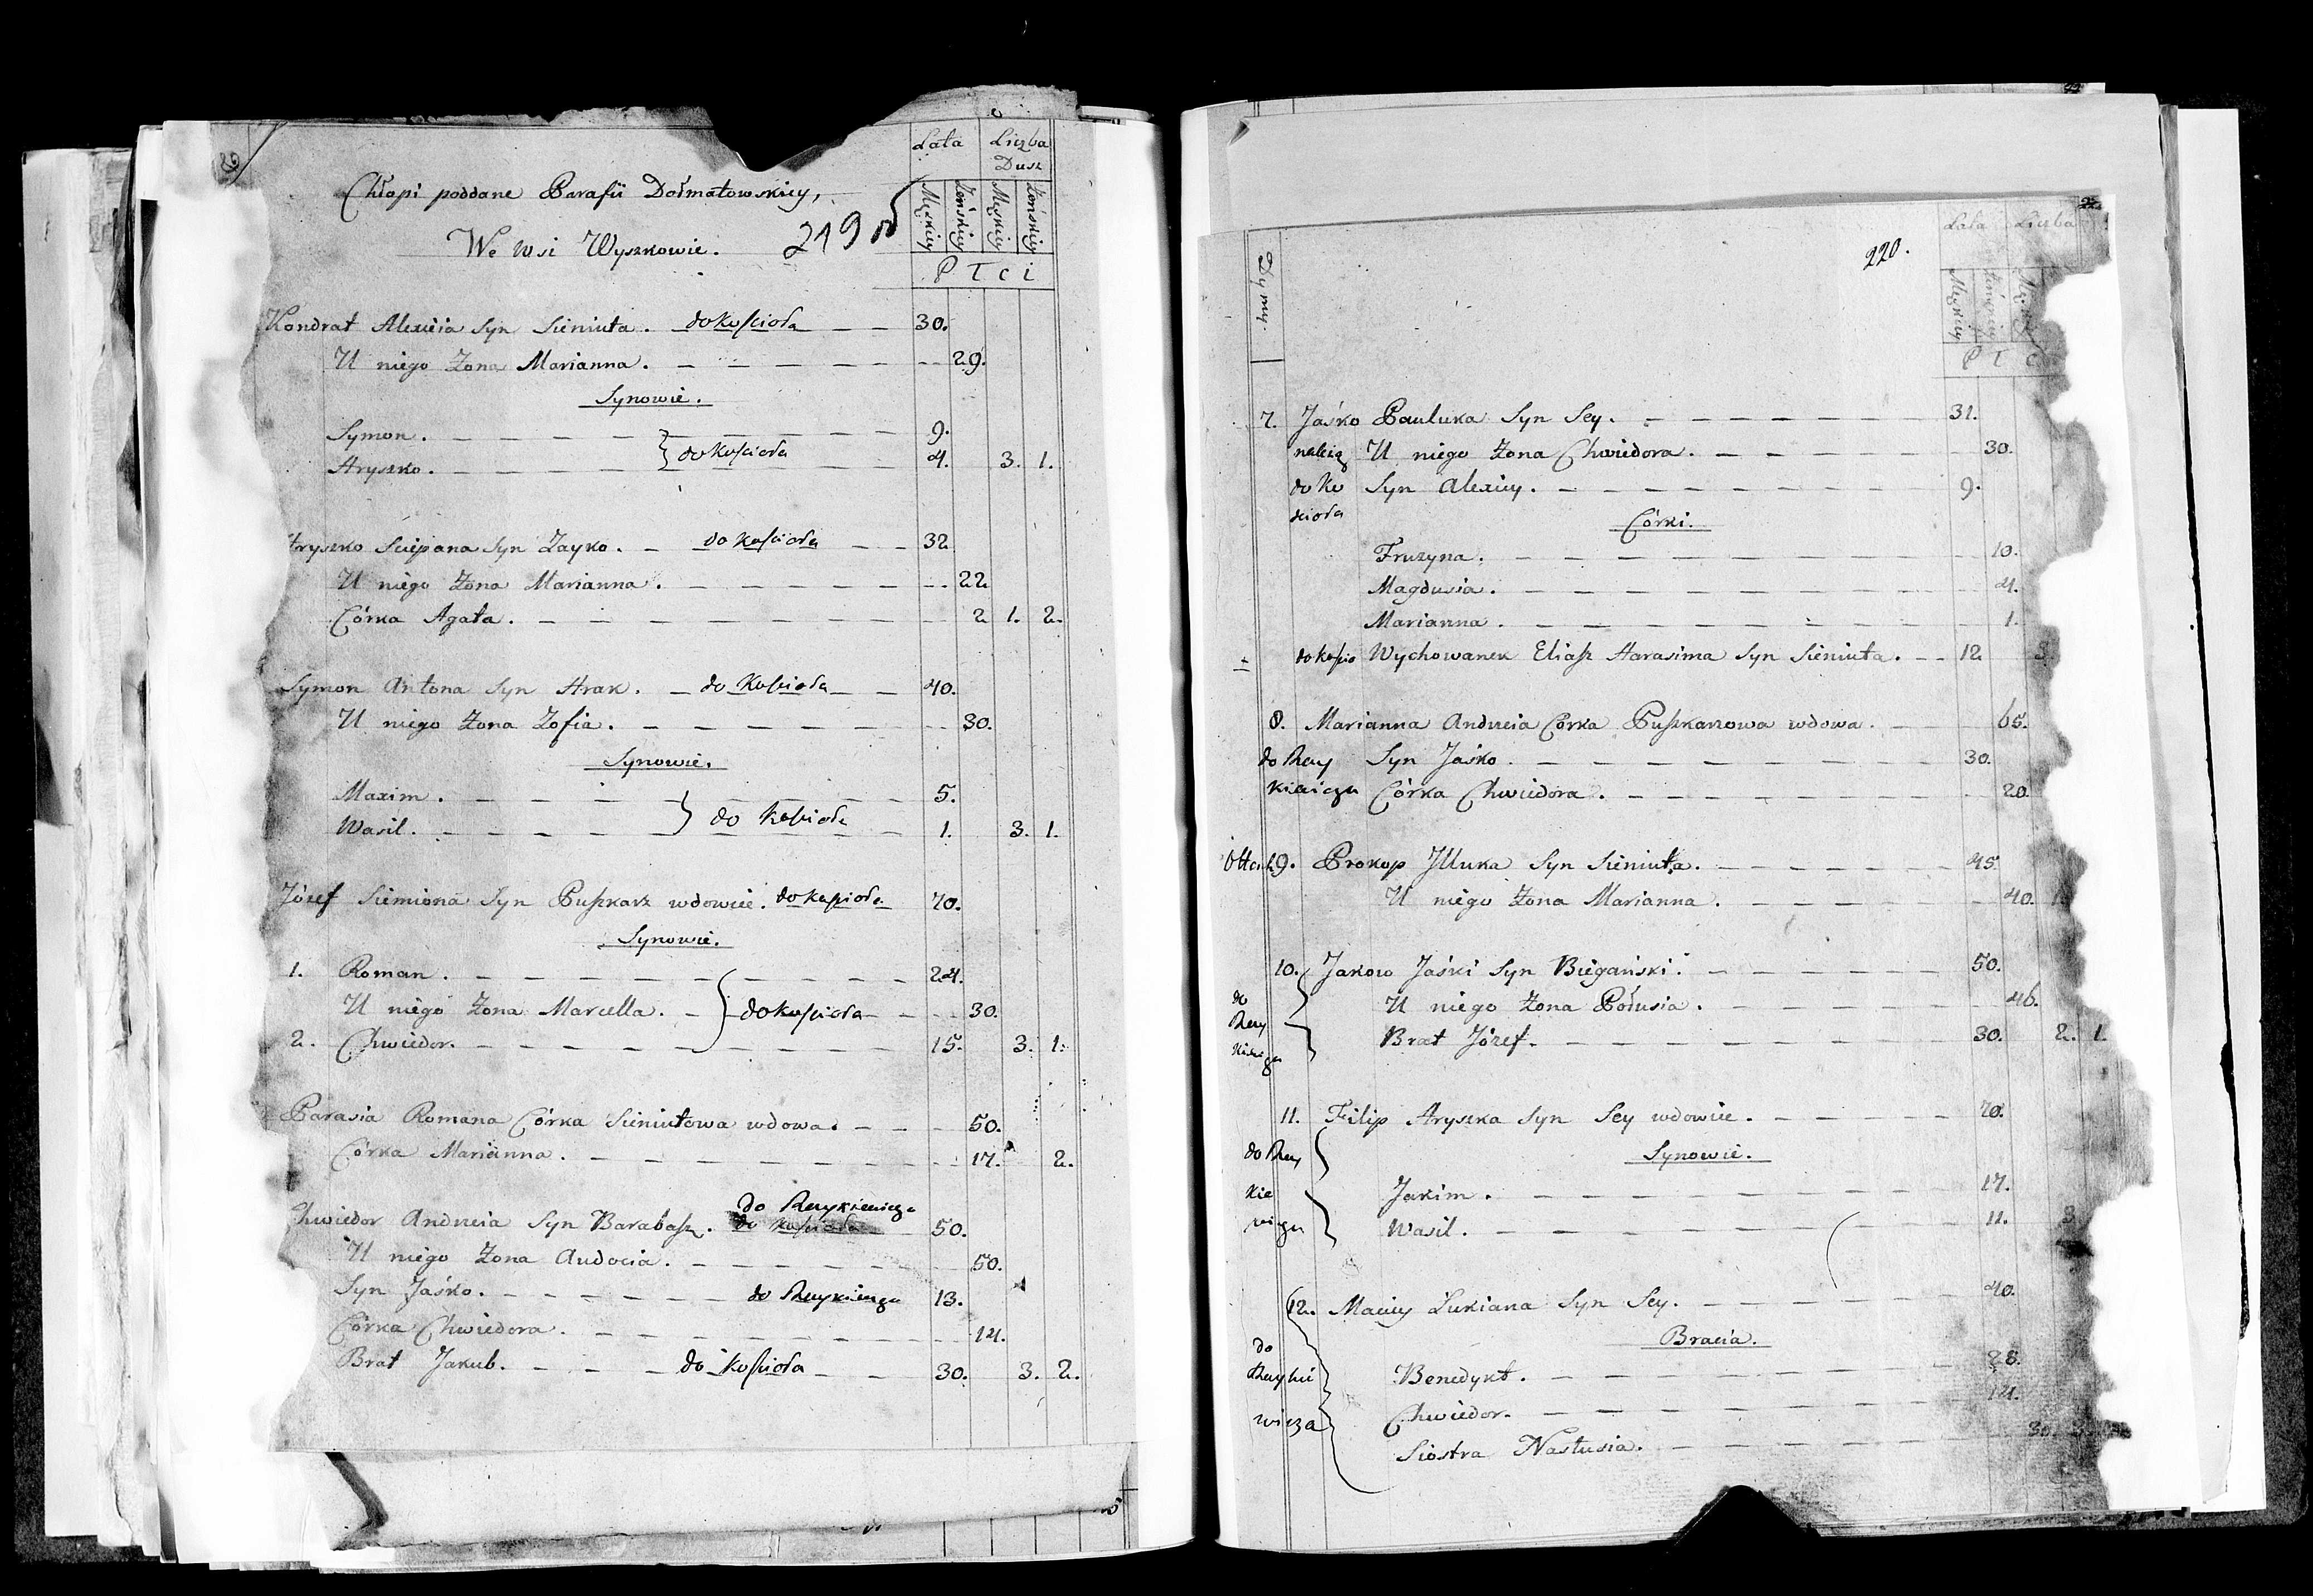 Lata Liczba
Dusz
Męzkiey Żeńskiey Męzkiey Żeńskiey
Płci
Chłopi poddane Parafii Dołmatowskiey,
We wsi Wyszkowie. 219 об
Kondrat Alexieia Syn Sieniuta. do Kościoła — — 30.
U niego Żona Marianna. — — — — — — 29.
Synowie.
Symon. — — — — — — 9.
Hryszko. — — — — — } do Kościoła — — 4. 3. 1.
Hryszko Sciepana Syn Zayko. — do Kościoła — — 32
U niego Żona Marianna. — — — — — — 22
Córka Agata. — — — — — — — 2 1. 2.
Symon Antona Syn Hrak. — do Kościoła — — 40.
U niego Żona Zofia. — — — — — — 30.
Synowie.
Maxim. — — — — — — 5.
Wasil. — — — — — } do Kościoła — 1. 3. 1.
Józef Siemiona Syn Puszkarz wdowiec. do Kościoła 70.
Synowie.
1. Roman. — — — — — — 24.
U niego Żona Marcella. — } do Kościoła — — 30.
2. Chwiedor. — — — — — — 15. 3. 1.
Parasia Romana Córka Sieniutowa wdowa. — — — 50.
Córka Marianna. — — — — — — — 17. 2.
do Reykiewicza
Chwiedor Andrzeia Syn Barabasz. do Kościoła — 50.
U niego Żona Audocia. — — — — — — 50.
Syn Jaśko. — — — — — do Reykiewicza 13.
Córka Chwiedora. — — — — — — — 14.
Brat Jakub. — — — do Kościoła — — 30. 3. 2.
Lata Liczba
220.
Dymy.
Męzkiey Żeńskiey Męzkiey
Płc
7. Jaśko Pauluka Syn Sey. — — — — — — 31.
należą U niego Żona Chwiedora. — — — — — 30.
do Ko Syn Alexiey. — — — — — — — 9.
ścioła Córki.
Fruzyna. — — — — — — — — 10.
Magdusia. — — — — — — — — 4.
Marianna. — — — — — — — — 1.
do Kościo Wychowanek Eliasz Harasima Syn Sieniuta. — — 12 3
8. Marianna Andrzeia Córka Puszkarzowa wdowa. — — 65.
do Rey Syn Jaśko. — — — — — — — — 30.
kiewicza Córka Chwiedora. — — — — — — — 20.
9. Prokop Illuka Syn Sieniuta. — — — — — 45.
U niego Żona Marianna. — — — — — 40. 1
10. Jakow Jaśki Syn Biegański. — — — — — 50.
do U niego Żona Połusia. — — — — — — 46.
Rey Brat Józef. — — — — — — — — 30. 2. 1.
kiewicza
11. Filip Hryszka Syn Sey wdowiec. — — — — 70.
do Rey Synowie.
kie Jakim. — — — — — — — — 17.
wicza Wasil. — — — — — — — — 11. 3
12. Maciey Łukiana Syn Sey. — — — — — 40.
do Bracia.
Reykie Benedykt. — — — — — — — 28.
wicza Chwiedor. — — — — — — — 14.
Siostra Nastusia. — — — — — — 30. 3.